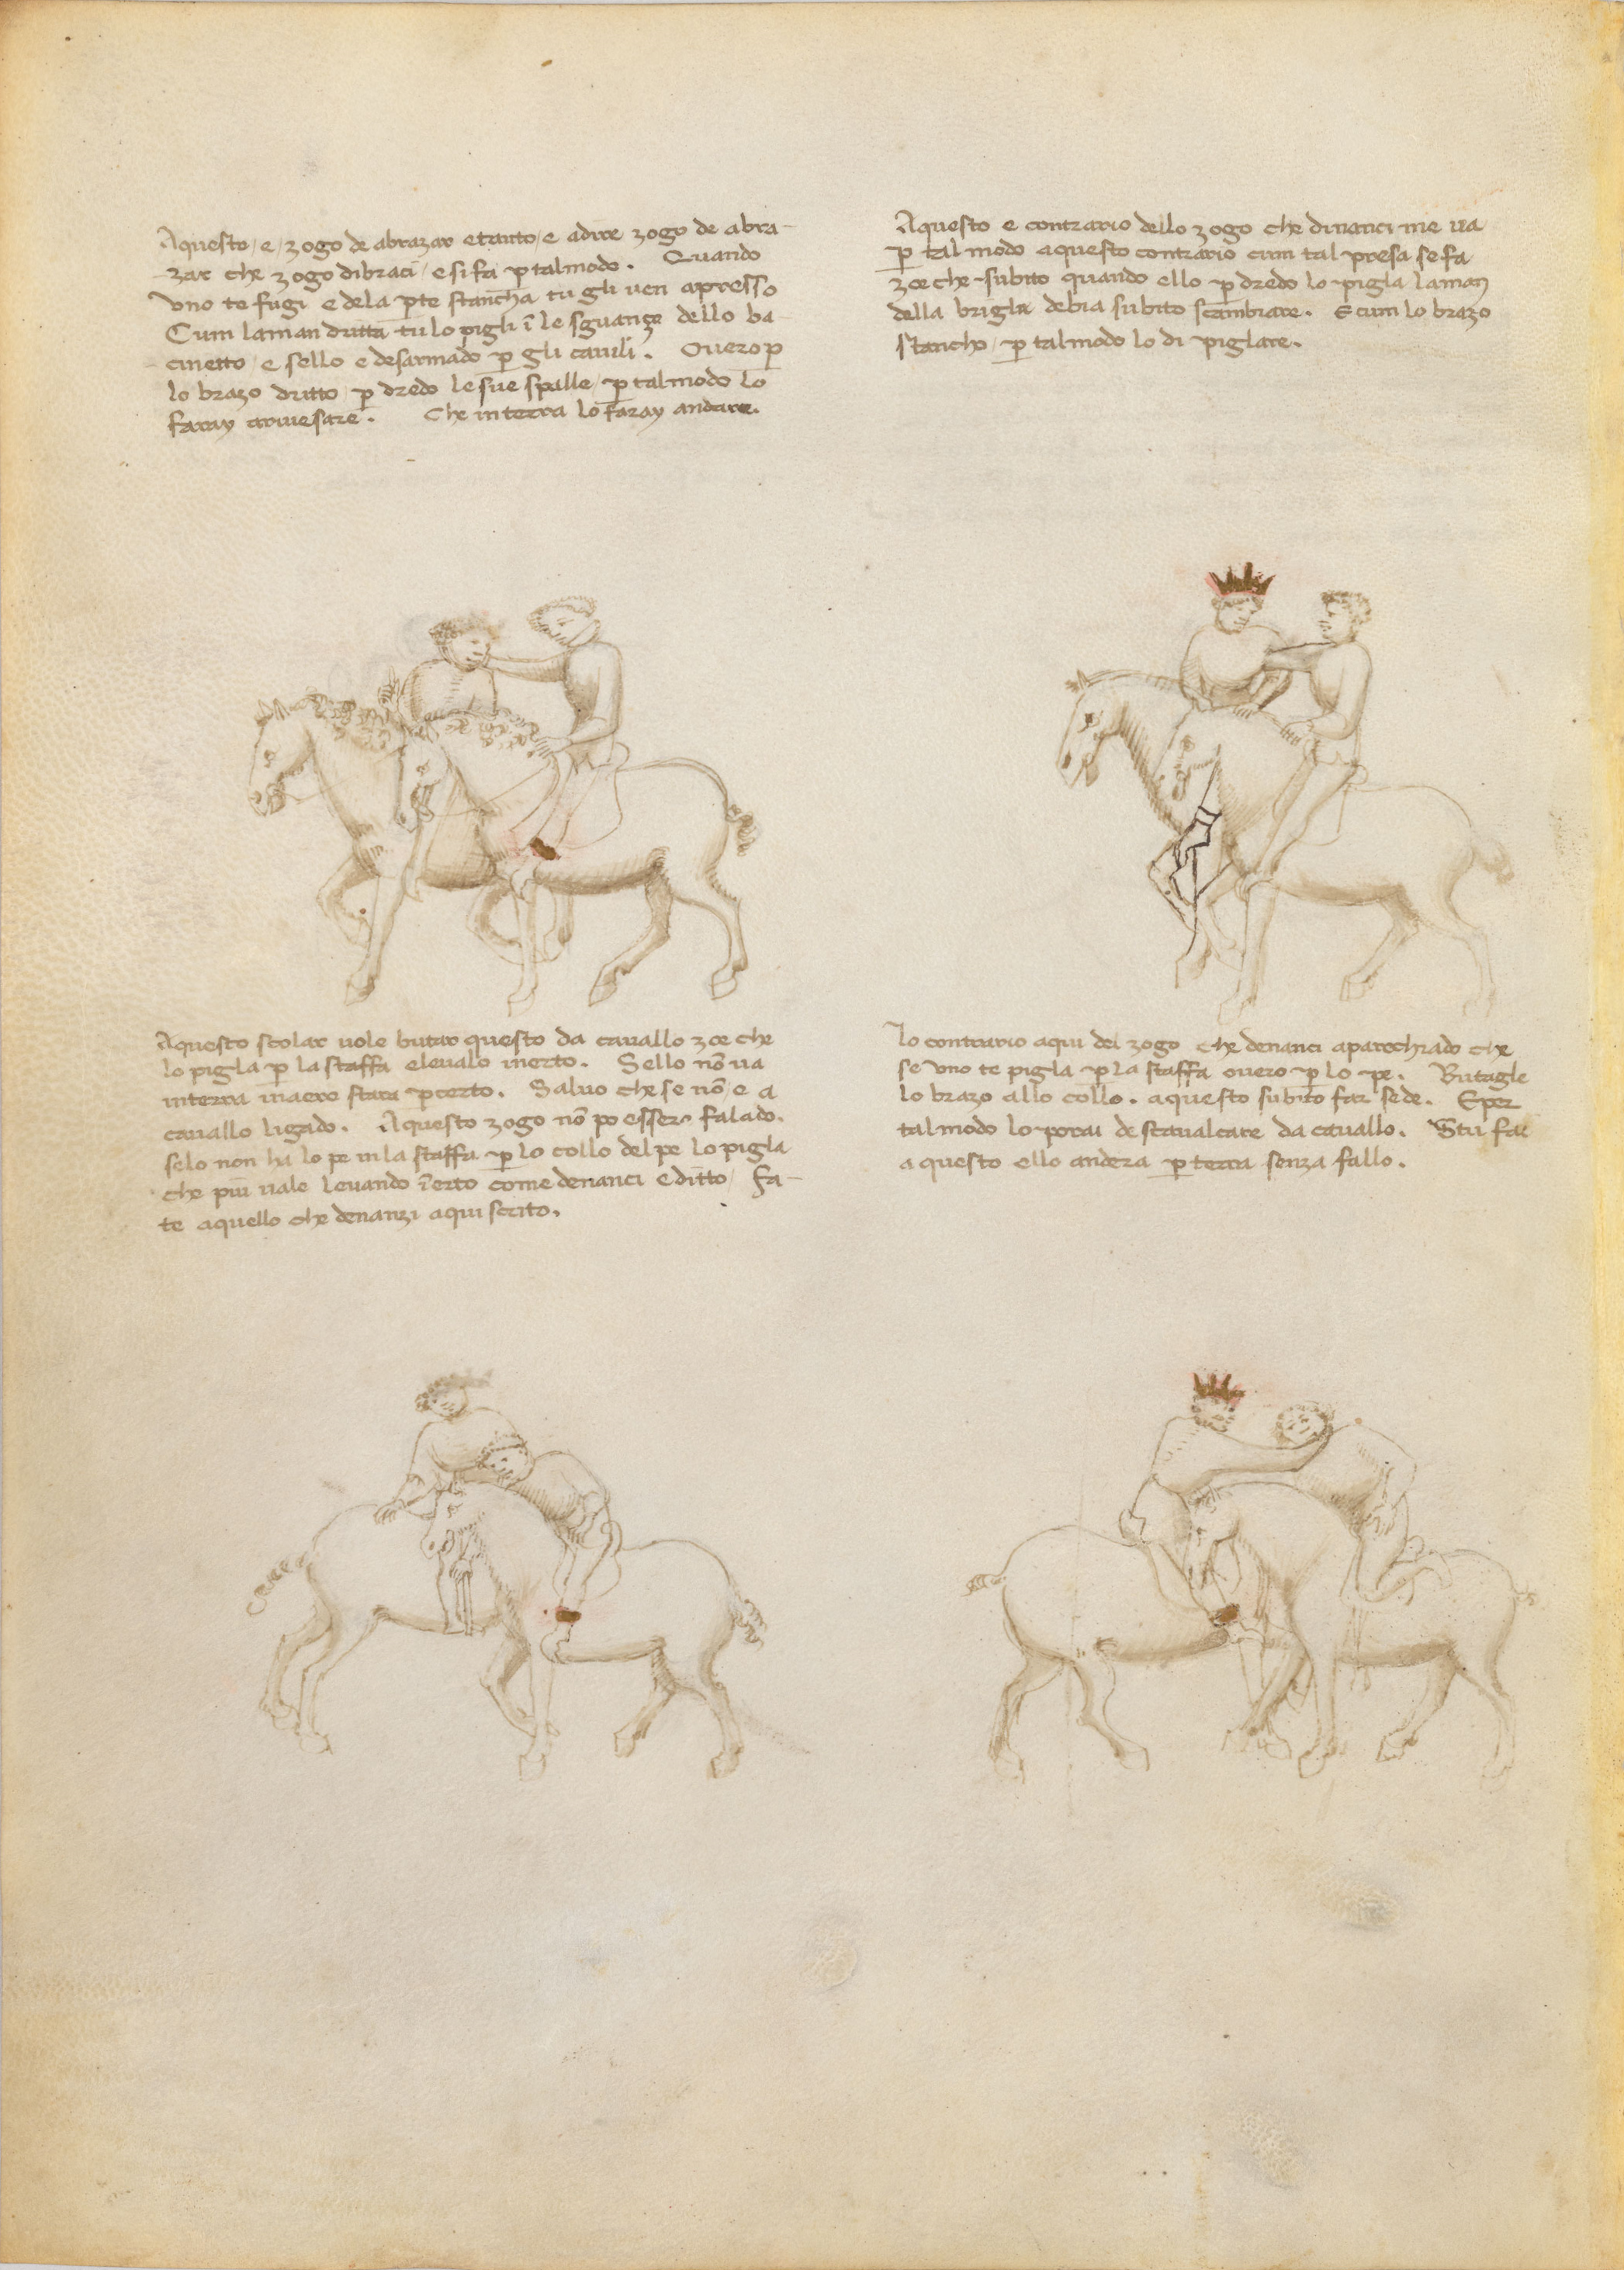 Aquesto / e / zogo de abrazar e tanto / e adire zogo de abra-
zar che zogo di braci / e si fa p tal modo. Quando
uno te fugi e de la pte stancha tu gli ven apresso
Cum la man dritta tu lo pigli ī le sguanze dello ba
cinetto / e sello e desarmado p gli cavili. Overo p
lo brazo dritto / p dredo le sue spalle / p tal modo lo
faray
Che in terra lo faray andare.
Aquesto e contrario dello zogo che dinanci me va
p tal modo aquesto contrario cum tal presa se fa
zoe che subito quando ello p dredo lo pigla la man
della brigla debia subito scambiare. E cum lo brazo
stancho / p tal modo lo di piglare.
Aquesto scolar vole butar questo da cavallo zoe che
lo pigla p la staffa e levalo in erto. Sello nō va
in terra in aere stara p certo. Salvo che se nō / e a
cavallo ligado. Aquesto zogo nō po esser falado.
se lo non ha lo pe in la staffa p lo collo del pe lo pigla
che più vale levando ī erto come denanci e ditto / fa-
te aquello che denanzi aqui scrito.
Lo contrario aqui del zogo che denanci aparechiado che
se uno te pigla p la staffa overo p lo pe. Butagle
lo brazo allo collo. aquesto subito far se de. E per
tal modo lo porai descavalcare da cavallo. Stu fai
a questo ello andera p terra senza fallo.